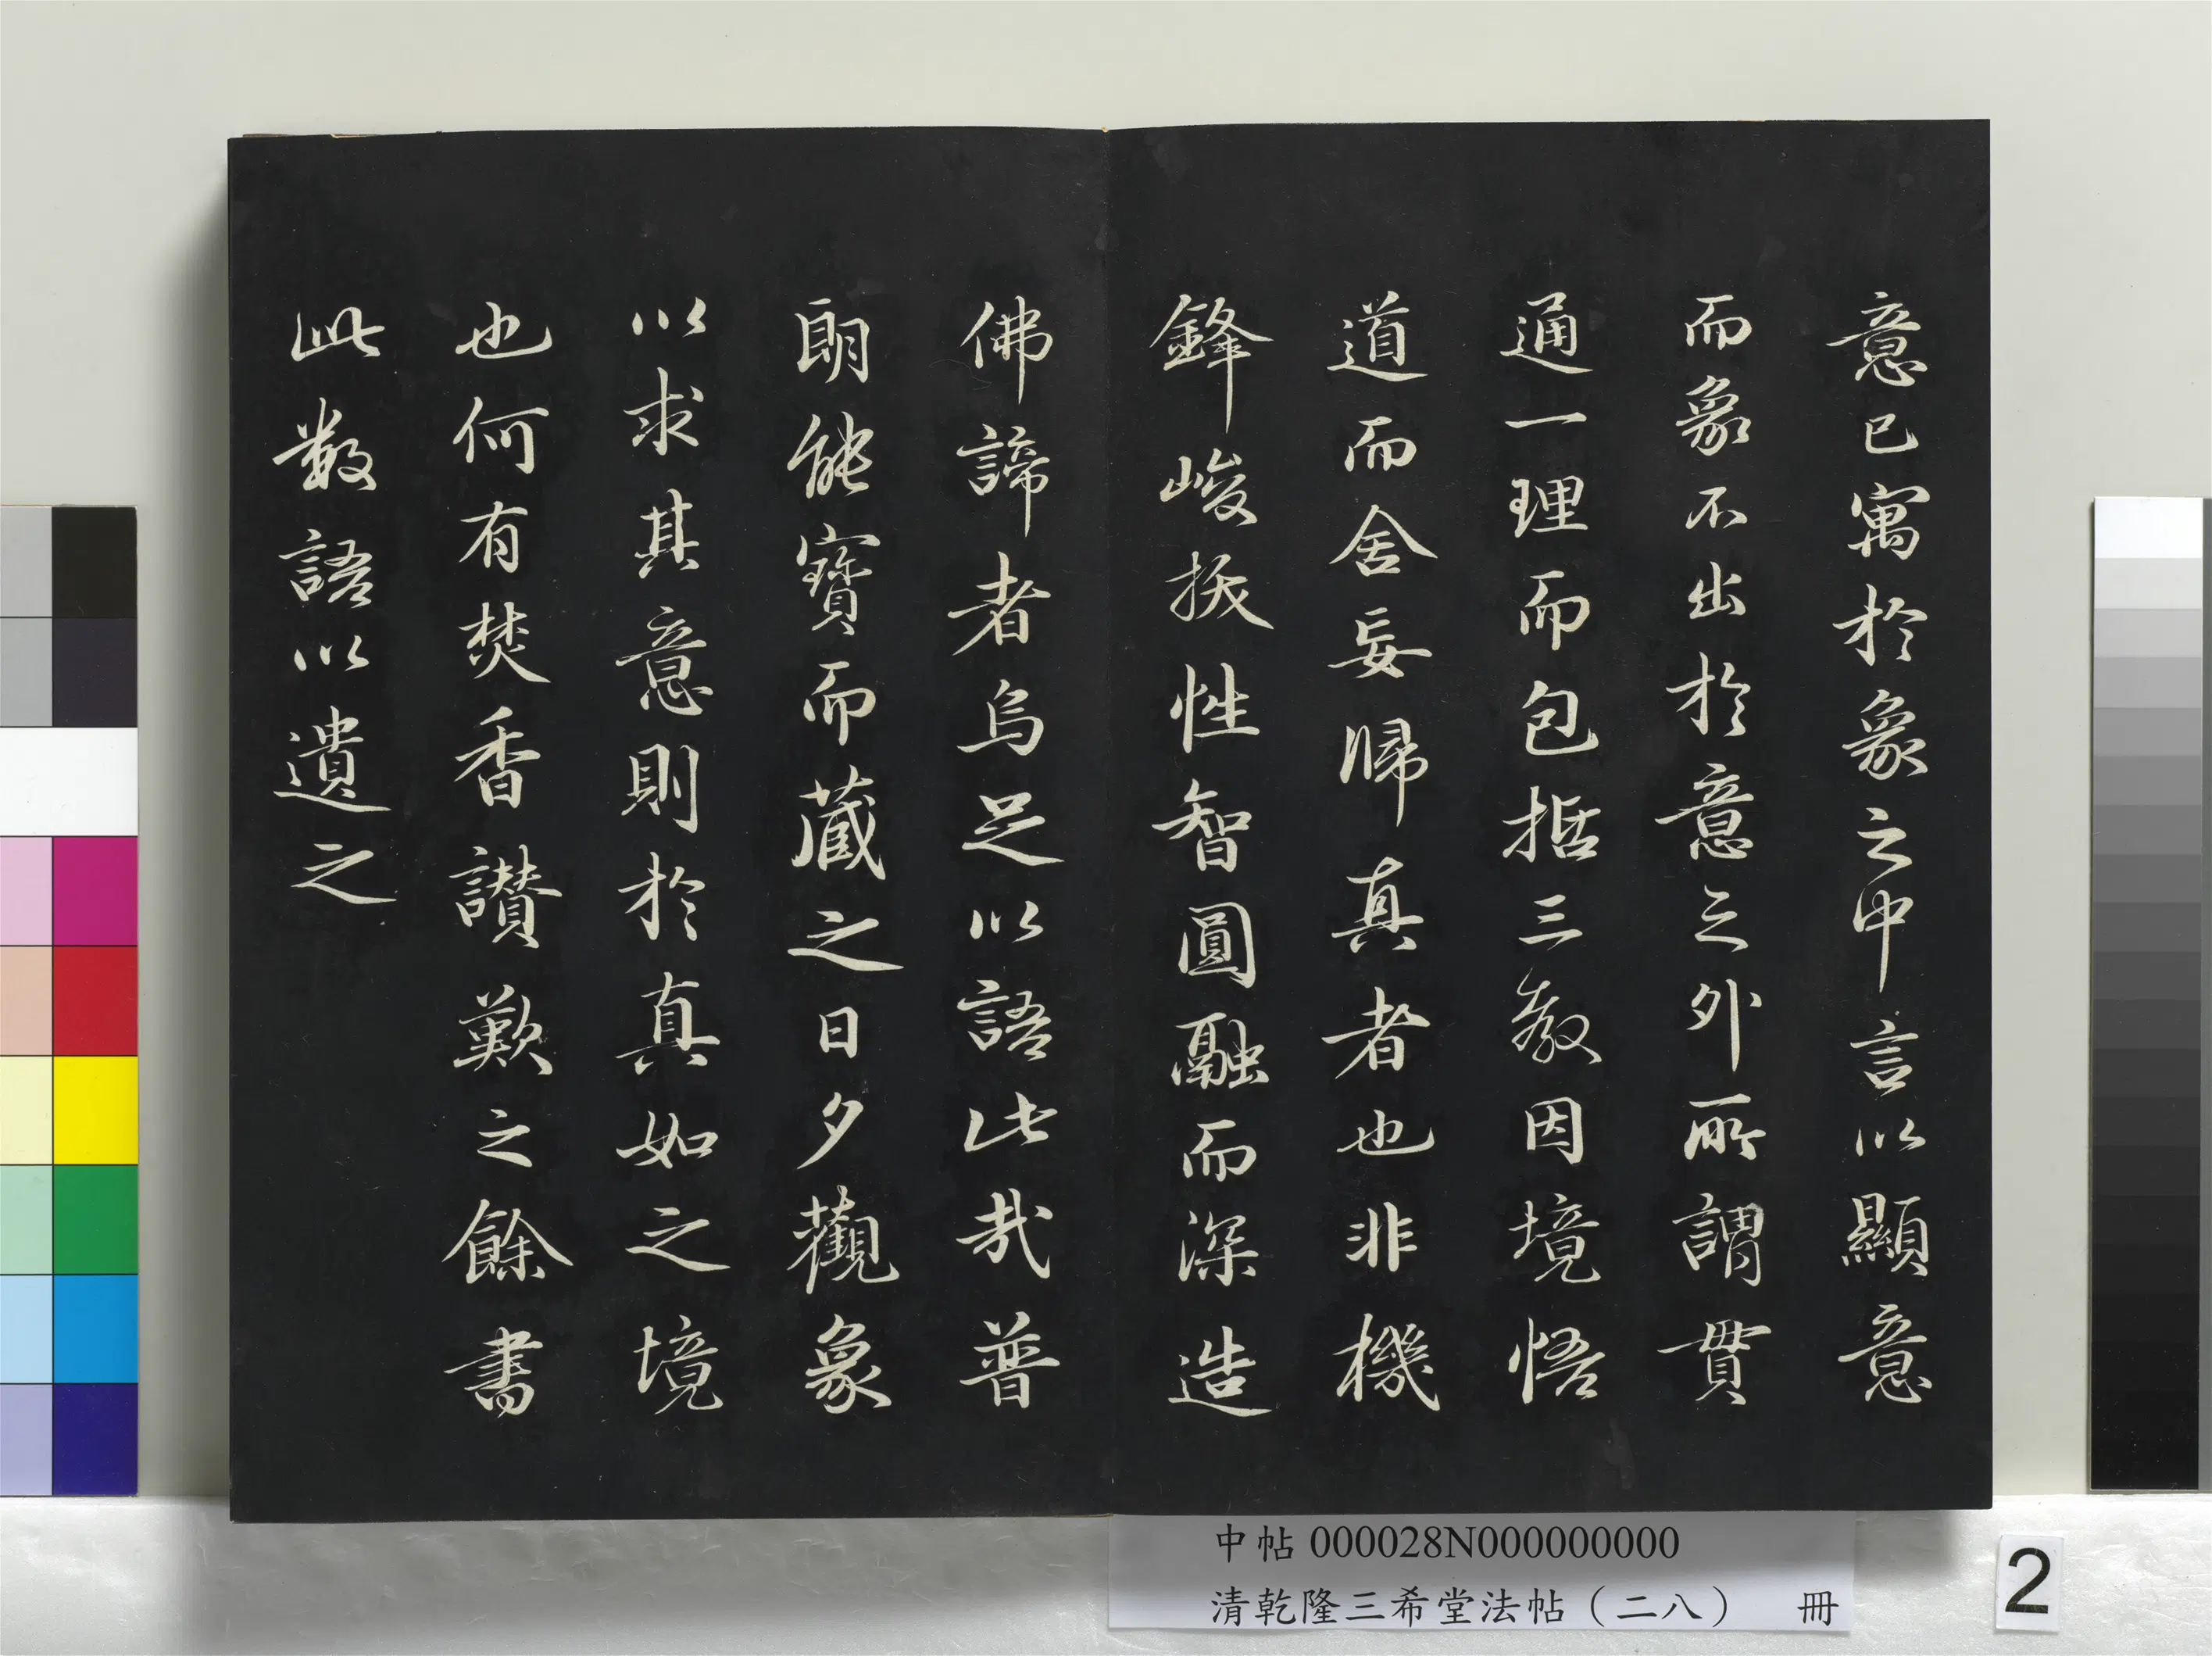 意已寓於象之中言以顯意
而象不出於意之外所謂貫
通一理而包括三教因境悟
道而舍妄歸真者也非機
鋒峻拔性智圓融而深造
佛諦者烏足以語此哉普
朗能寶而藏之日夕觀象
以求其意則於真如之境
也何有焚香讃歎之餘書
此數語以遺之
中帖 000028N000000000
清乾隆三希堂法帖（二八） 冊
2